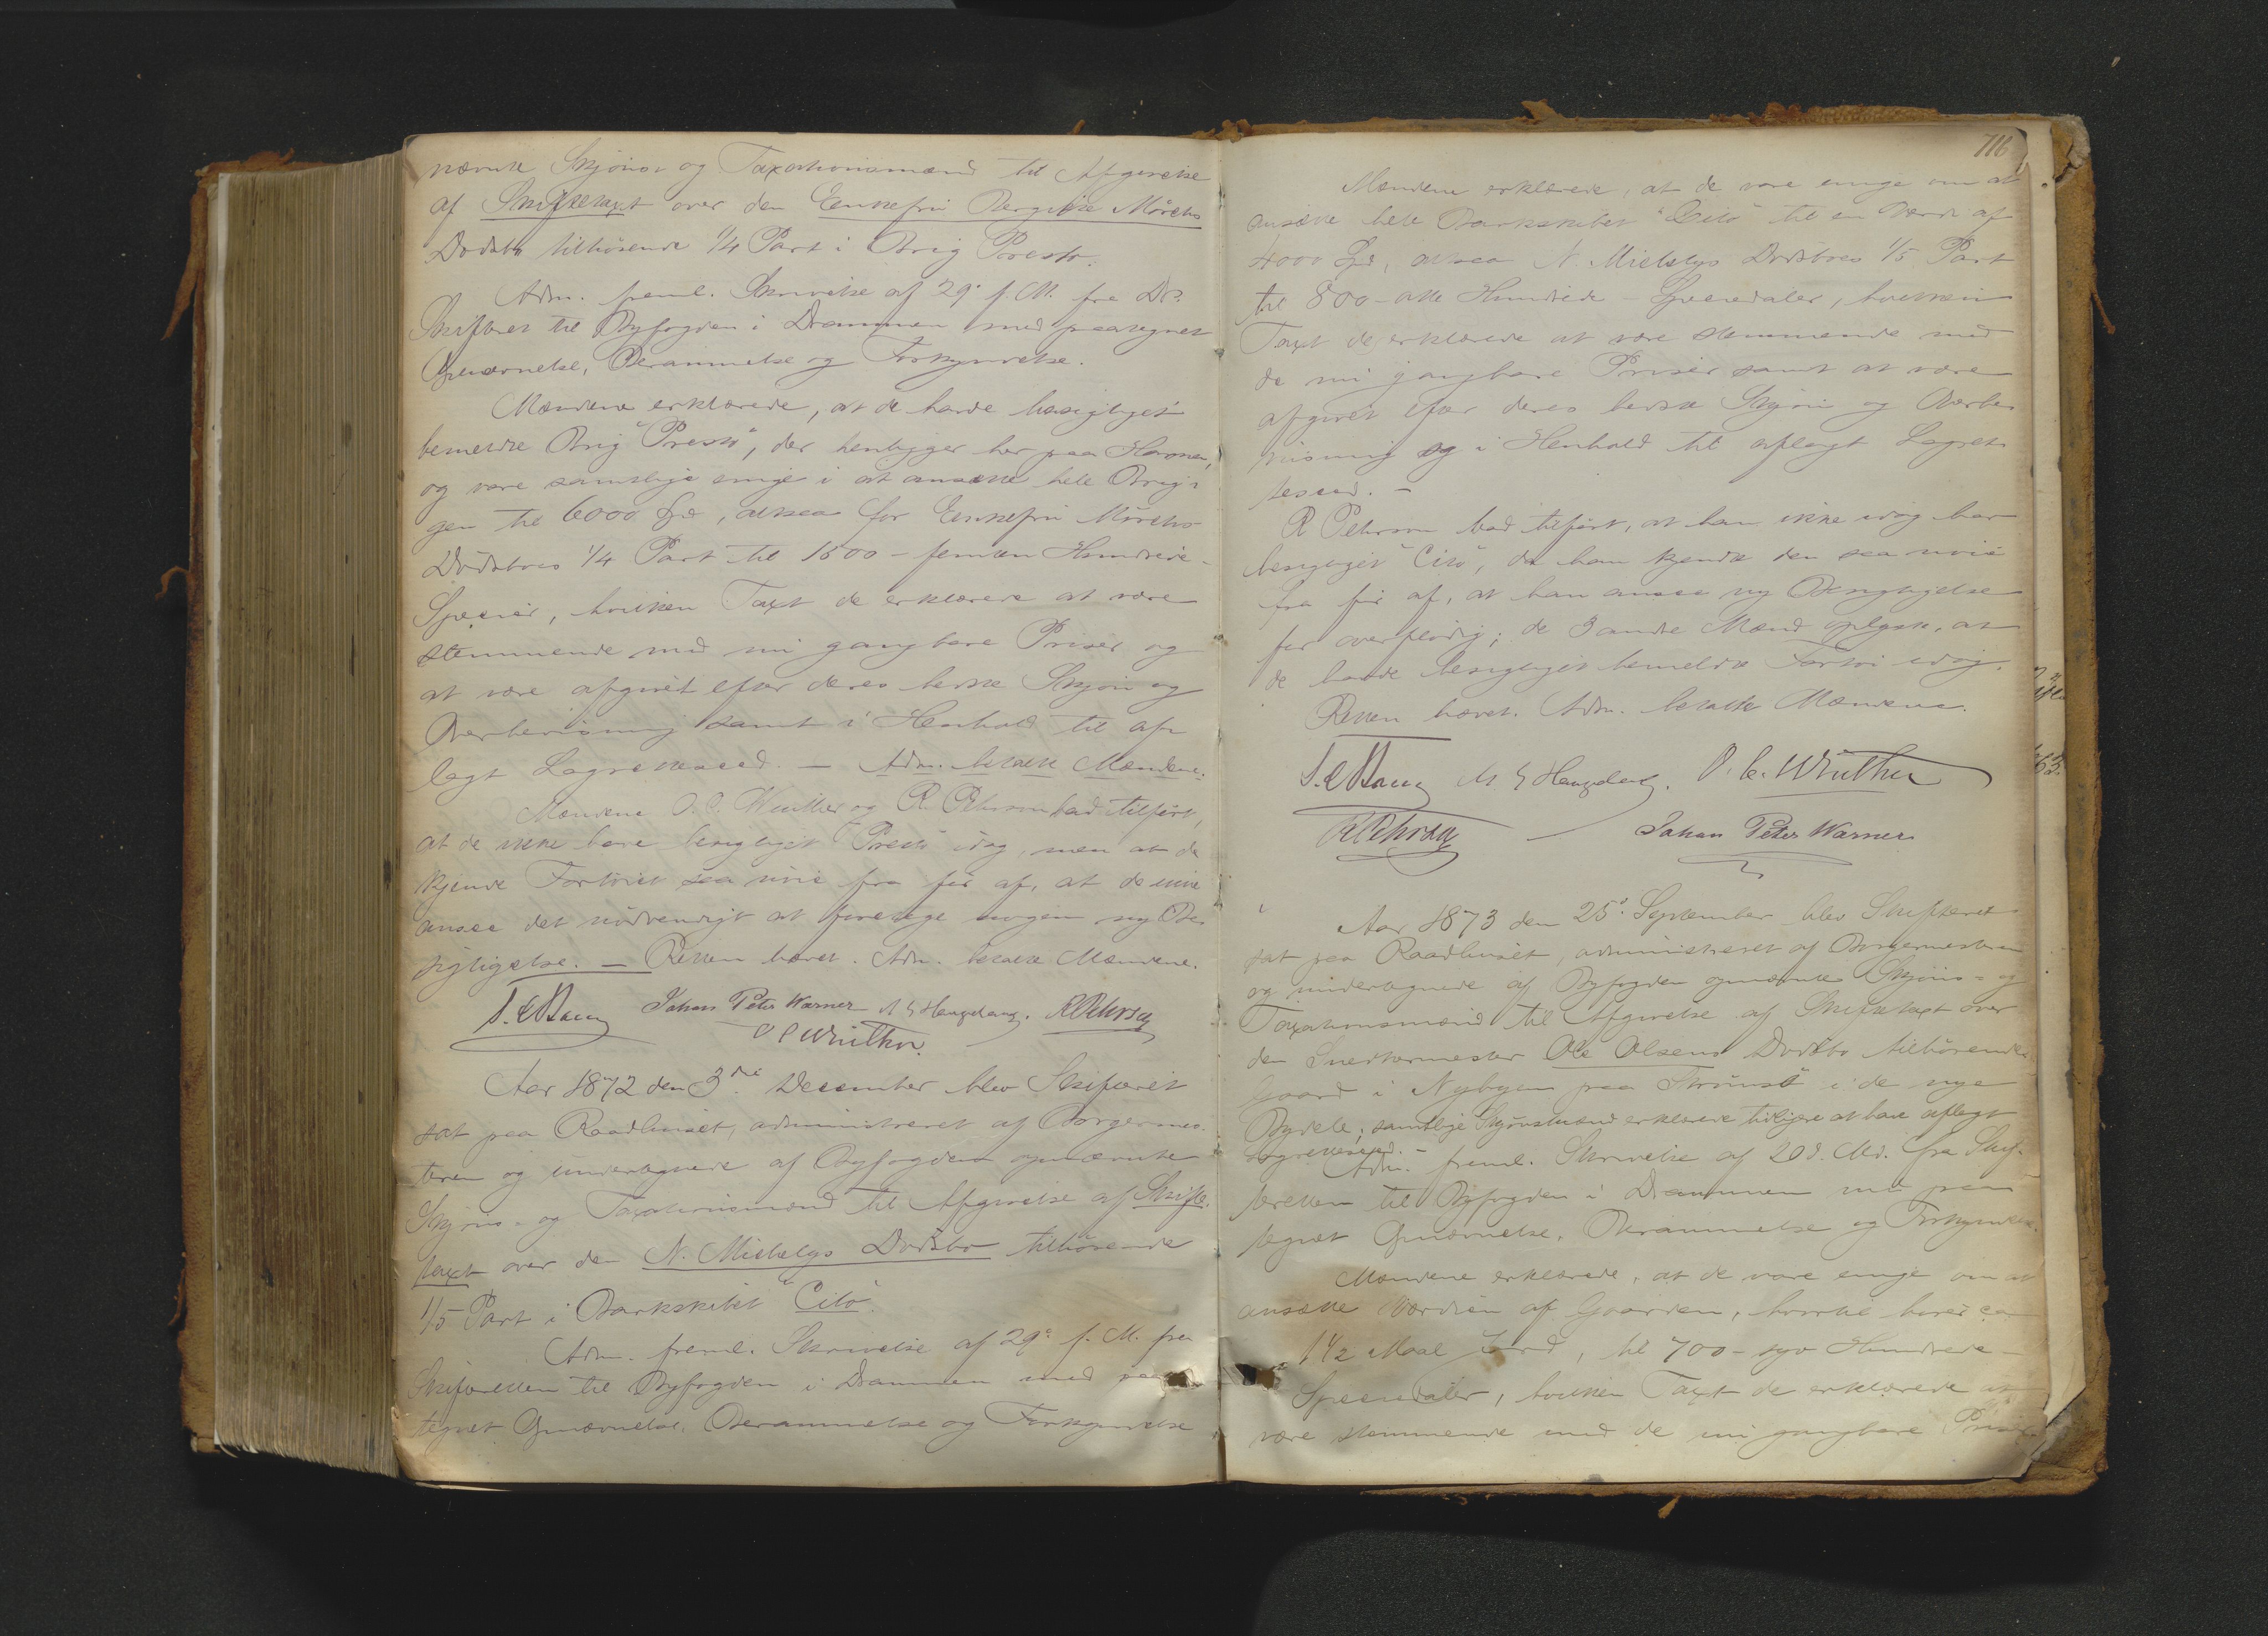 nævnte Skjöns- og Taxationsmænd til Afgivelse
af Skiftetaxt over den Enkefru Bergitte Mörchs
Dödsbo tilhörende 1/4 Part i Brig Presto.
Adm. freml. Skrivelse af 29' f. M. fra Dr.
Skifteret til Byfogden i Drammen med paategnet
Opnævnelse, Berammelse og Forkyndelse.
Mændene erklærede, at de havde besigtiget
bemeldte Brig "Presto", der henligger her paa Havnen,
og vare samtlige enige i at ansætte hele Brig-
gen til 6000 Spd, altsaa for Enkefru Mörchs
Dödsboes 1/4 Part til 1500 - femten Hundrede -
Species, hvilken Taxt de erklærede at være
stemmende med nu gangbare Priser og
at være afgivet efter deres bedste Skjön og
Overbeviisning samt i Henhold til af-
lagt Lagretteseed. — Adm. betalte Mændene.
Mændene O. C. Winther og R. Pehrson bad tilfört,
at de ikke have besigtiget "Presto" idag, men at de
kjende Fartöiet saa nöie fra för af, at de ikke
ansee det nödvendigt at foretage nogen ny Be-
sigtigelse. — Retten hævet. Adm. betalte Mændene.
Johan Peter Warner R Pehrson
O C Winther.
Aar 1872 den 3die December blev Skifteret
sat paa Raadhuset, administreret af Borgermes-
teren og undertegnede af Byfogden opnævnte
Skjöns- og Taxationsmænd til Afgivelse af Skifte-
taxt over den N. Mieletys Dödsbo tilhörende
1/5 Part i Barkskibet "Cito".
Adm. freml. Skrivelse af 29' f. M. fra
Skifteretten til Byfogden i Drammen med paa-
tegnet Opnævnelse, Berammelse og Forkyndelse
716
Mændene erklærede, at de vare enige om at
ansætte hele Barkskibet "Cito" til en Værdi af
4000 Spd, altsaa N. Mieletys Dödsboes 1/5 Part
til 800 - otte Hundrede - Speciedaler, hvilken
Taxt de erklærede at være stemmende med
de nu gangbare Priser samt at være
afgivet efter deres bedste Skjön og Overbe-
viisning og i Henhold til aflagt Lagret-
teseed. —
R Pehrson bad tilfört, at han ikke idag har
besigtiget "Cito", da han kjendte den saa nöie
fra för af, at han ansaa ny Besigtigelse
for overflödig; de 3 andre Mænd oplyste, at
de havde besigtiget bemeldte Fartöi idag.
Retten hævet. Adm. betalte Mændene.
O. C. Winther
R Pehrson Johan Peter Warner
Aar 1873 den 25' September blev Skifteret
sat paa Raadhuset, administreret af Borgermesteren
og undertegnede af Byfogden opnævnte Skjöns- og
Taxationsmænd til Afgivelse af Skiftetaxt over
den Snedkermester Ole Olsens Dödsbo tilhörende
Gaard i Nybyen paa Strömsö i de nye
Bydele; samtlige Skjönsmænd erklærede tidligere at have aflagt
Lagretteseed. —
Adm. freml. Skrivelse af 20 d. Md. fra Skif-
teretten til Byfogden i Drammen med paa-
tegnet Opnævnelse, Berammelse og Forkyndelse.
Mændene erklærede, at de vare enige om at
ansætte Værdien af Gaarden, hvortil hörer ca
1 1/2 Maal Jord, til 700 - syv Hundrede -
Speciedaler, hvilken Taxt de erklærede at
være stemmende med de nu gangbare Priser